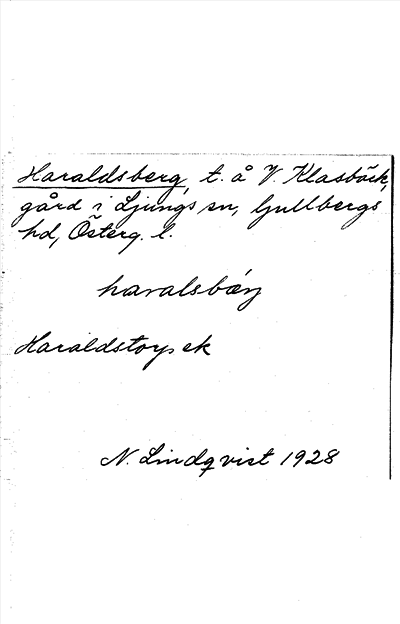 Haraldsberg, t. å V. Klasbäck,
gård i Ljungs sn, Gullbergs
hd, Österg. l.
haralsbærj
Haraldstorps ek
N. Lindqvist 1928